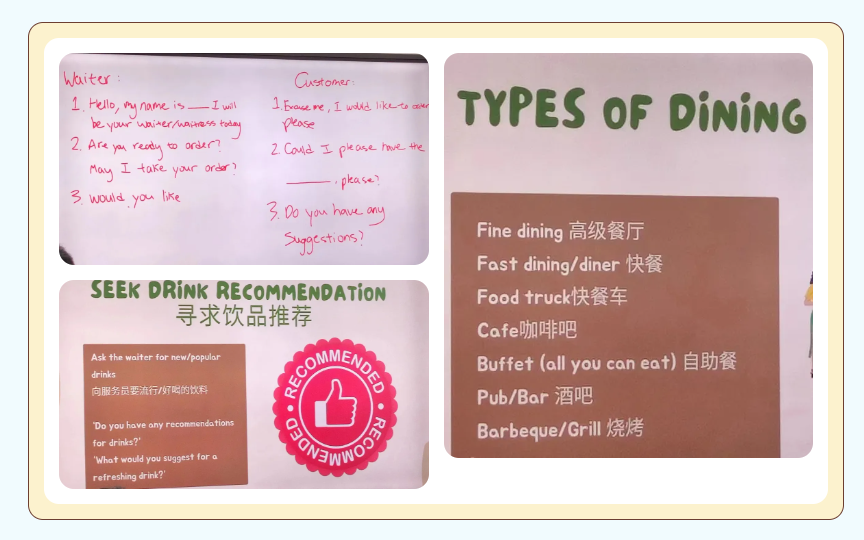 Waiter:
1. Hello, my name is ___ I will
be your waiter/waitress today
2. Are you ready to order?
May I take your order?
3. Would you like
Customer:
1. Excuse me, I would like to order
please
2. Could I please have the
______, please?
3. Do you have any
Suggestions?
SEEK DRINK RECOMMENDATION
寻求饮品推荐
Ask the waiter for new/popular
drinks
向服务员要流行/好喝的饮料
'Do you have any recommendations
for drinks?'
'What would you suggest for a
refreshing drink?'
RECOMMENDED
RECOMMENDED
TYPES OF DINING
Fine dining 高级餐厅
Fast dining/diner 快餐
Food truck快餐车
Cafe咖啡吧
Buffet (all you can eat) 自助餐
Pub/Bar 酒吧
Barbeque/Grill 烧烤